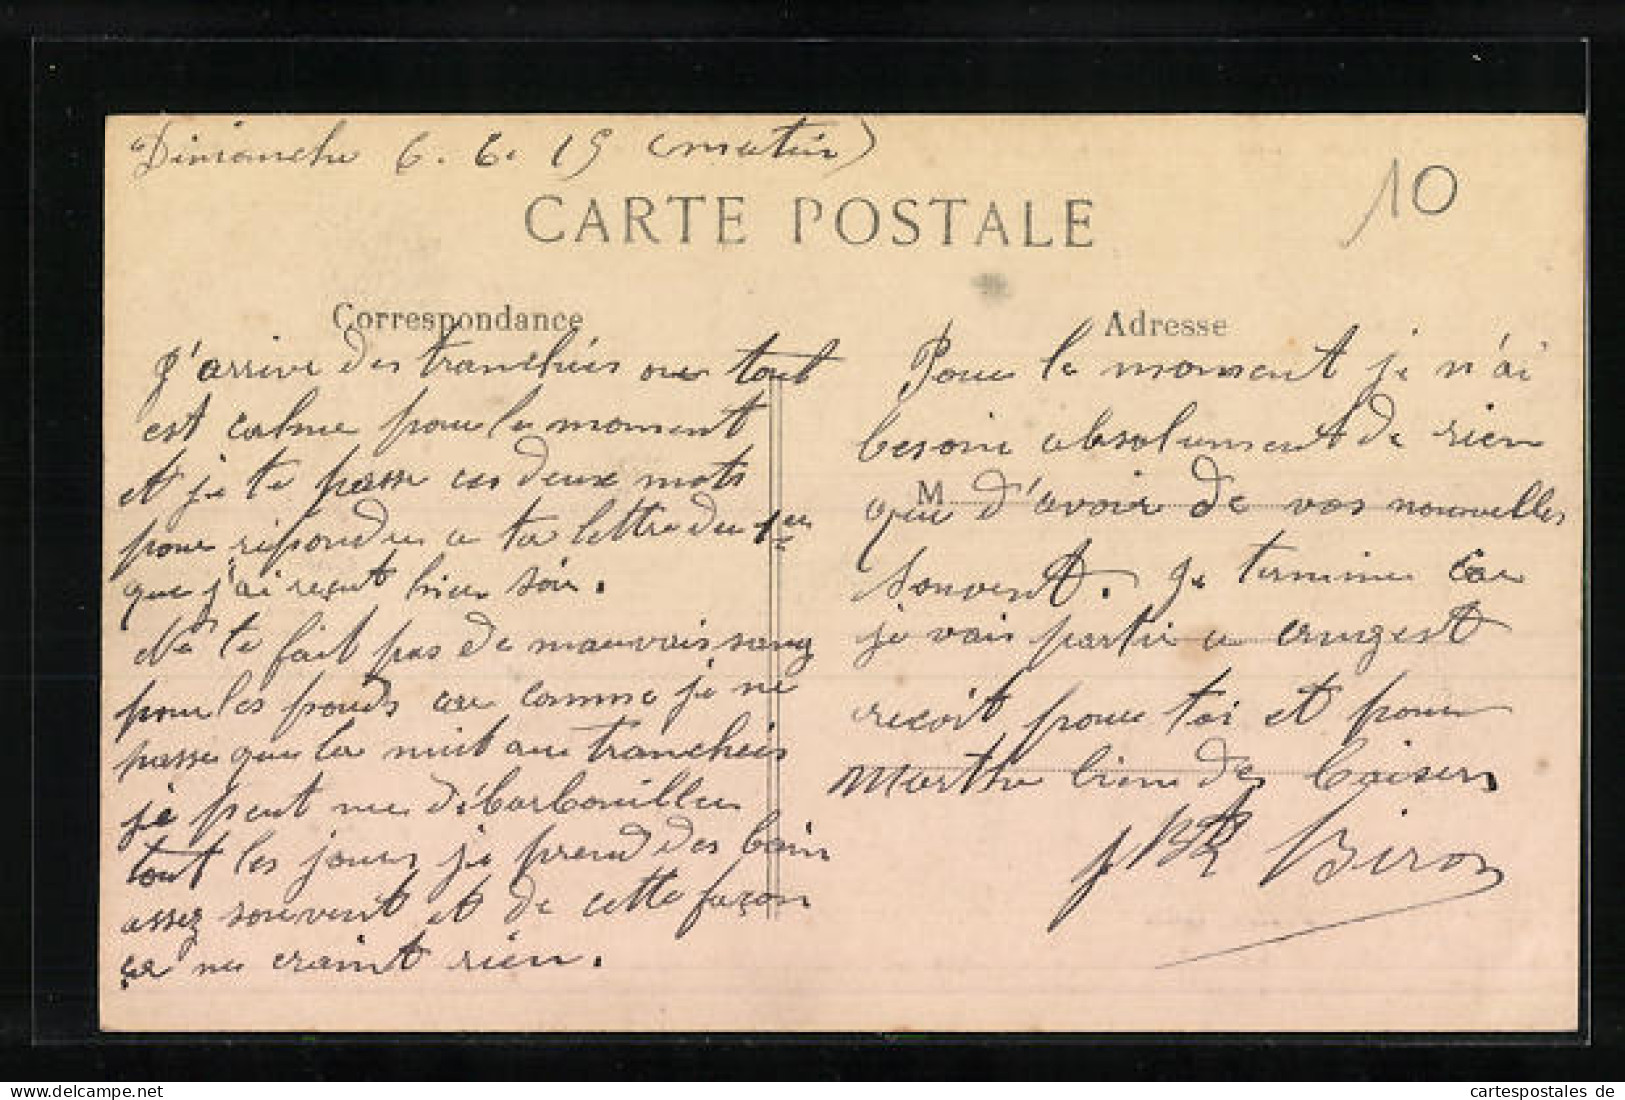 Dimanche 6. 6. 15 (matin)
10
CARTE POSTALE
Correspondance
J'arrive des tranchées ou tout
est calme pour le moment
et je te passe ces deux mots
pour répondre a ta lettre du 1er
que j'ai reçut hier soir.
Ne te fait pas de mauvais sang
pour les pouds car comme je ne
passe que la nuit au tranchées
je peut me débarbouiller
tout les jours je prend des bain
assez souvent et de cette façon
ça ne craint rien.
Adresse
Pour le moment je n'ai
besoin absolument de rien
M
que d'avoir de vos nouvelles
souvent. Je termine car
je vais partir a
reçoit pour toi et pour
Marthe bien des baisers
Biron
cartespostales de